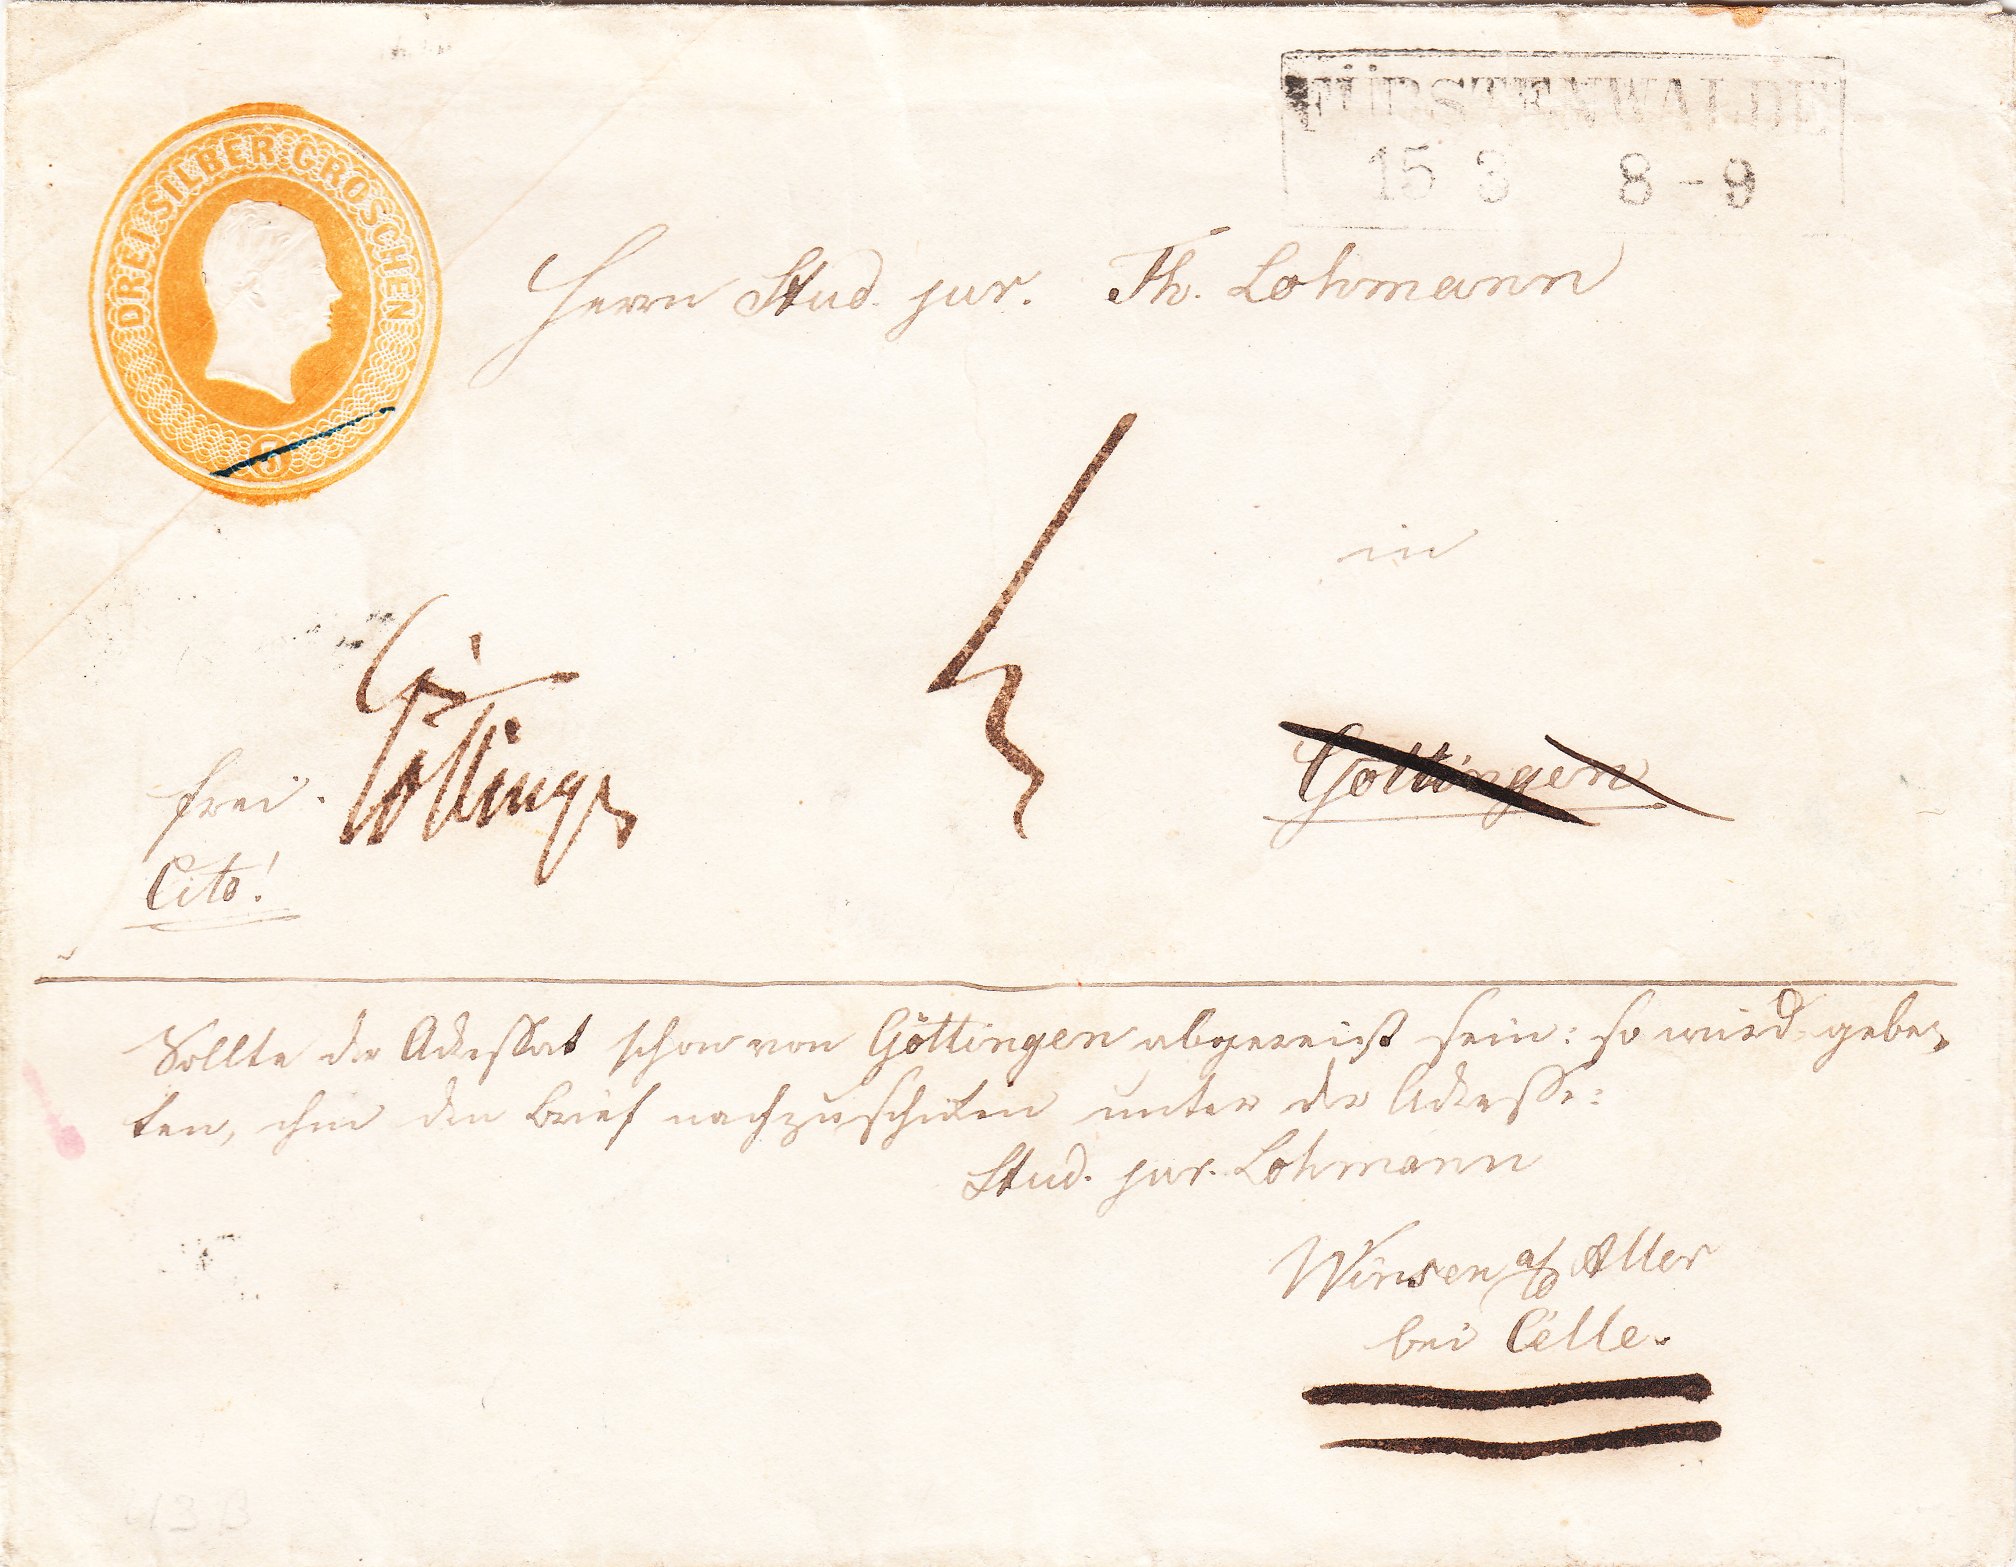 DREI SILBER GROSCHEN
3
FÜRSTENWALDE
15 3 8-9
Herrn Stud. jur. Th. Lohmann
in
Göttingen
frei.
Cito!
Sollte der Adressat schon von Göttingen abgereist sein: so wird gebe-
ten, ihm den Brief nachzuschicken unter der Adresse:
Stud. jur. Lohmann
Winsen a/d Aller
bei Celle.